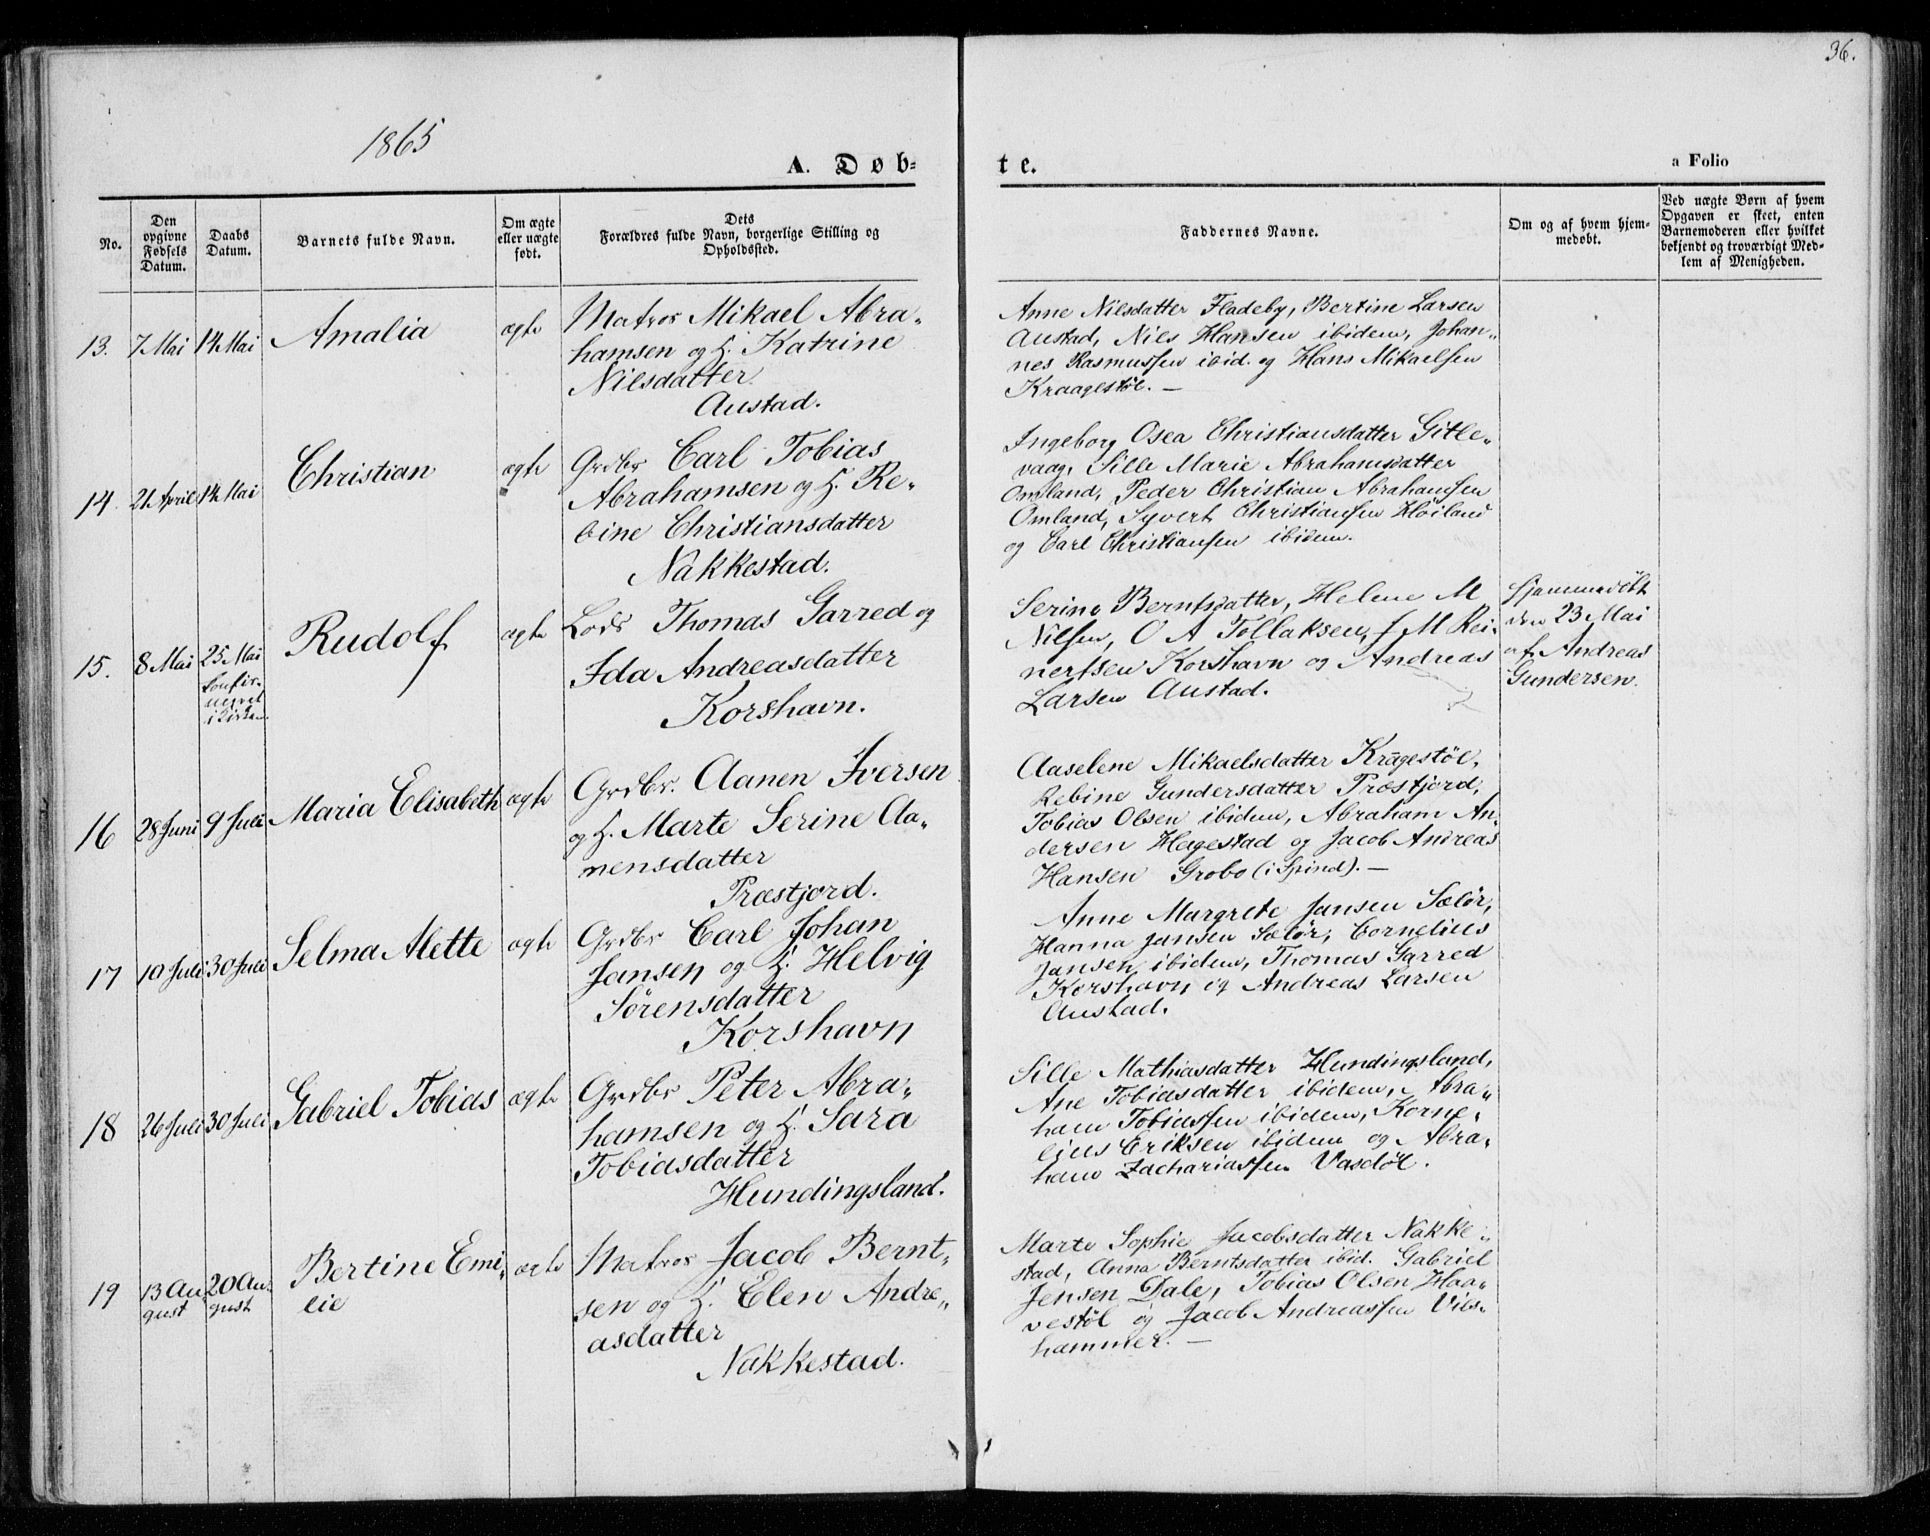 36.
1865
A. Døb-
te.
a Folio
No.
Den opgivne Fødsels Datum.
Daabs Datum.
Barnets fulde Navn.
Om ægte eller uægte født.
Dets Forældres fulde Navn, borgerlige Stilling og Opholdssted.
Faddernes Navne.
Om og af hvem hjemmedøbt.
Ved uægte Børn af hvem Opgaven er skeet, enten Barnemoderen eller hvilket bekjendt og troværdigt Medlem af Menigheden.
13. 7 Mai 14 Mai Amalia ægte
Matros Mikael Abra-
hamsen og H. Katrine
Nilsdatter
Austad.
Anne Nilsdatter Fladeby, Bertine Larsen
Austad, Nils Hansen ibidem, Johan-
nes Rasmussen ibid. og Hans Mikaelsen
Kraagestøl. —
14. 21 April 14 Mai Christian ægte
Grdbr Carl Tobias
Abrahamsen og H. Re-
bine Christiansdatter
Nakkestad.
Ingeborg Osea Christiansdatter Gitle-
vaag, Sille Marie Abrahamsdatter
Omland, Peder Christian Abrahamsen
Omland, Syvert Christiansen Høiland
og Carl Christiansen ibidem.
15. 8 Mai 25 Mai
Confir-
meret
i Kirken
Rudolf ægte
Lods Thomas Garred og
Ida Andreasdatter
Korshavn.
Serine Berntsdatter, Helene M
Nilsen, O A Tollaksen, J M Rei-
nertsen Korshavn og Andreas
Larsen Austad.
Hjemmedøbt
den 23 Mai
af Andreas
Gundersen.
16 28 Juni 9 Juli Maria Elisabeth ægte
Grdbr. Aanen Iversen
og H. Marte Serine Aa-
nensdatter
Præstjord.
Aaselene Mikaelsdatter Kragestøl,
Rebine Gundersdatter Præstjord,
Tobias Olsen ibidem, Abraham An-
dersen Hagestad og Jacob Andreas
Hansen Grobo (i Spind). —
17 10 Juli 30 Juli Selma Alette ægte
Grdbr Carl Johan
Jansen og H. Helvig
Sørensdatter
Korshavn
Anne Margrete Jansen Sælør,
Hanna Jansen Sælør, Cornelius
Jansen ibidem, Thomas Garred
Korshavn og Andreas Larsen
Austad.
18 26 Juli 30 Juli Gabriel Tobias ægte
Grdbr Peter Abra-
hamsen og H. Sara
Tobiasdatter
Hundingsland.
Sille Mathiasdatter Hundingsland,
Ane Tobiasdatter ibidem, Abra-
ham Tobiassen ibidem, Korne-
lius Eriksen ibidem og Abra-
ham Zachariassen Vasdøl.
19 13 Au-
gust
20 Au-
gust
Bertine Emi-
lie
ægte
Matros Jacob Bernt-
sen og H. Elen Andre-
asdatter
Nakkestad.
Marte Sophie Jacobsdatter Nakke-
stad, Anna Berntsdatter ibid. Gabriel
Jensen Dale, Tobias Olsen Haa-
vestøl og Jacob Andreassen Vils-
hammer. —